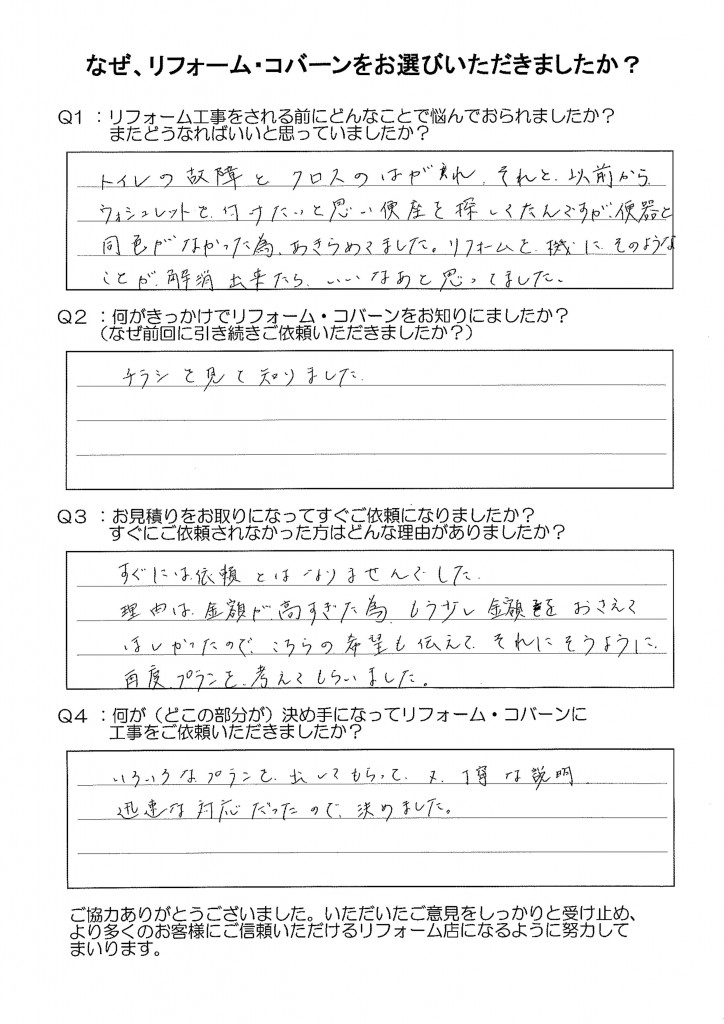 なぜ、リフォーム・コバーンをお選びいただきましたか？
Q1 ：リフォーム工事をされる前にどんなことで悩んでおられましたか？
またどうなればいいと思っていましたか？
トイレの故障と クロスのはがれ、それと、以前から
ウォシュレットを、付けたいと思い便座を探してたんですが、便器と
同色がなかった為、あきらめてました。リフォームを、機に そのような
ことが、解消 出来たら、いいなあと思ってました。
Q2 ：何がきっかけでリフォーム・コバーンをお知りにましたか？
（なぜ前回に引き続きご依頼いただきましたか？）
チラシを見て知りました。
Q3 ：お見積りをお取りになってすぐご依頼になりましたか？
すぐにご依頼されなかった方はどんな理由がありましたか？
すぐには依頼とはなりませんでした。
理由は、金額が、高すぎた為、もう少し 金額を おさえて
ほしかったので、こちらの希望も伝えて、それにそうように、
再度、プランを、考えてもらいました。
Q4 ：何が（どこの部分が）決め手になってリフォーム・コバーンに
工事をご依頼いただきましたか？
いろいろなプランを、出してもらって、又、丁寧な説明、
迅速な対応だったので、決めました。
ご協力ありがとうございました。いただいたご意見をしっかりと受け止め、
より多くのお客様にご信頼いただけるリフォーム店になるように努力して
まいります。